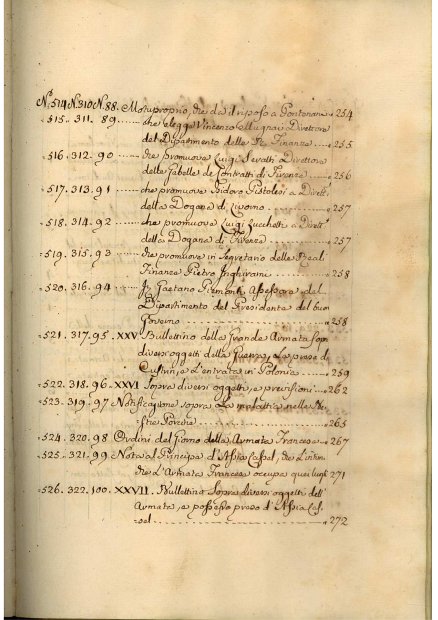 N.514 N.310 N.88. Motuproprio, che dà il riposo a Gontenare 254
515. 311. 89 che elegge Vincenzo Direttore
del Dipartimento delle R. Finanze 255
516. 312. 90 che promuove Luigi Seratti Direttore
delle Gabelle de Contratti di Firenze 256
517. 313. 91 che promuove Isidoro Pistolesi a Dirett.
della Dogana di Livorno 257
518. 314. 92 che promuove Luigi Zucchetti a Dirett.
della Dogana di Firenze 257
519. 315. 93 che promuove in Segretario delle Reali
Finanze Pietro Inghirami 258
520. 316. 94 Gaetano Assessore del
Dipartimento del Presidente del buon
Governo 258
521. 317. 95. XXV. Bullettino della Grande Armata Sop.
diversi oggetti della Guerra, e La presa di
Custrin, e L'entrata in Polonia 259
522. 318. 96. XXVI. Sopra diversi oggetti, e previsioni 262
523. 319. 97 Notificazione sopra La malattia nelle
265
524. 320. 98 Ordini del Giorno della Armata Francese 267
525. 321. 99 Nota al Principa d'Assia Cassel, che L'inten
de L'Armata Francese occupa quei luoghi 271
526. 322. 100. XXVII. Bullettino Sopra diversi oggetti dell'
Armata, e possesso preso d'Assia Cas
sel 272